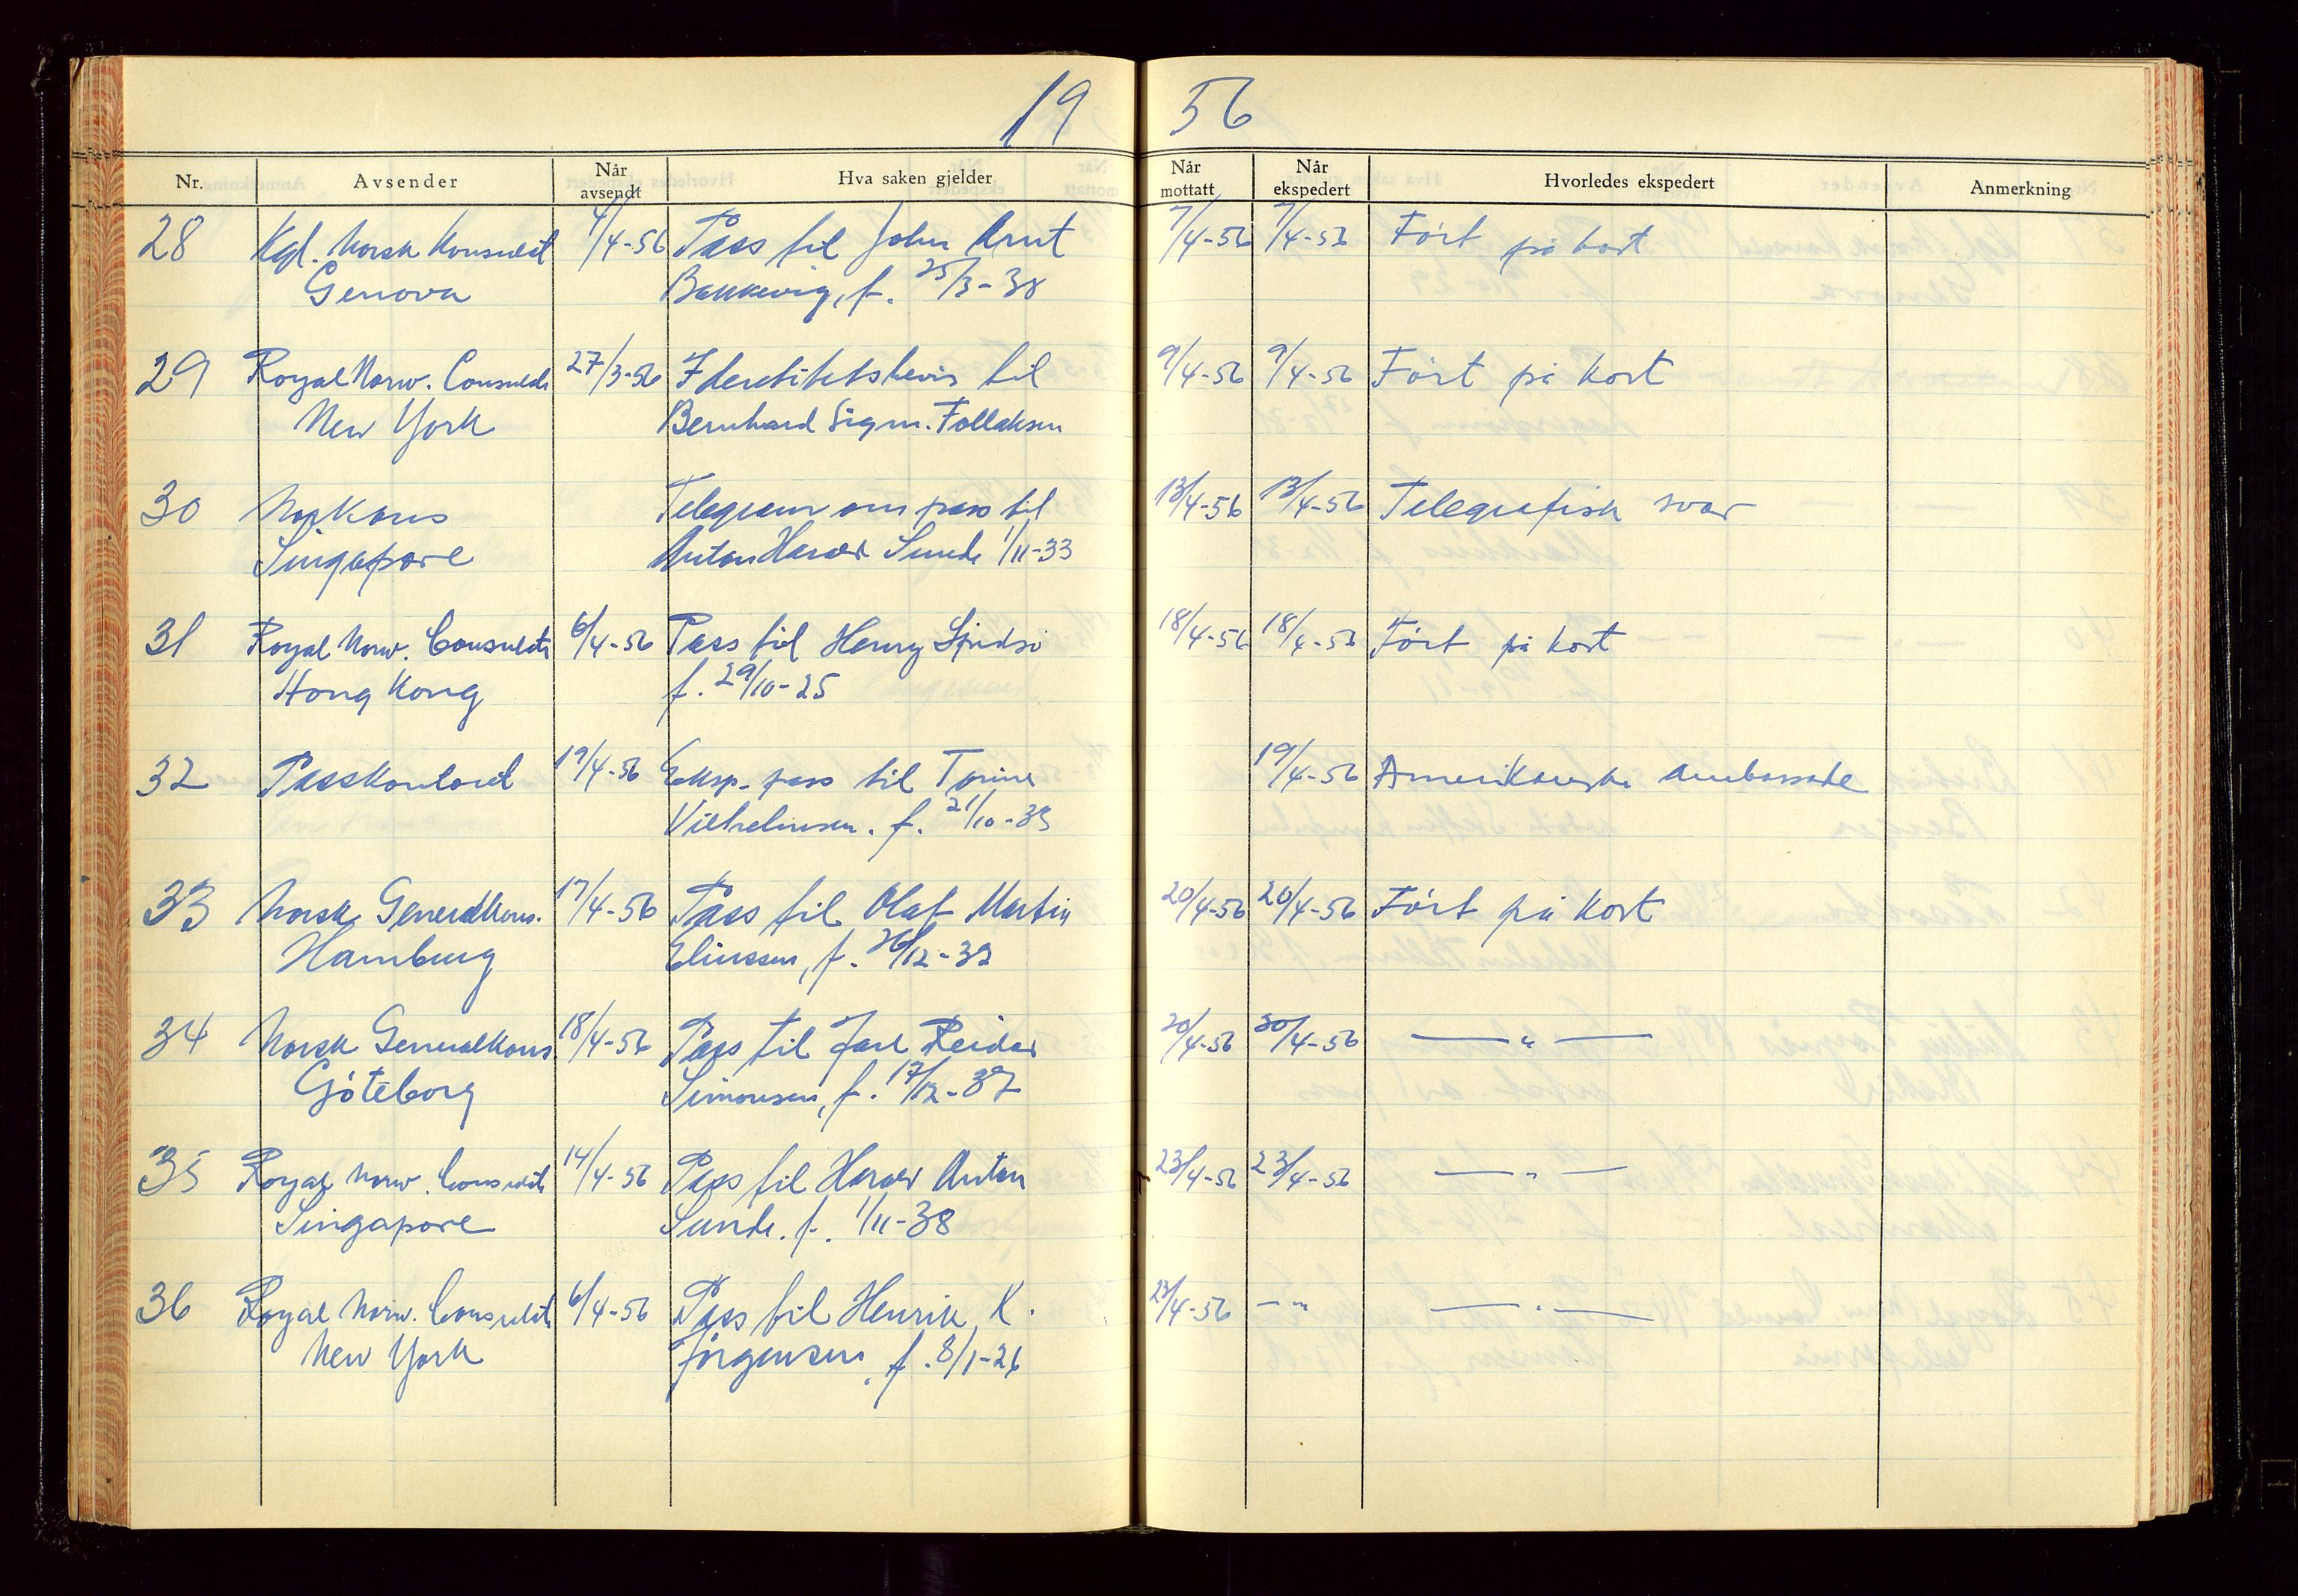 19 56
Nr. Avsender Når avsendt Hva saken gjelder Når mottatt Når ekspedert Hvorledes ekspedert Anmerkning
28 Kgl. Norsk Konsulat 4/4-56 Pass til John Arnt 7/4-56 7/4-56 Ført på kort
Genova Bakkevig, f. 25/3-38
29 Royal Norw. Consulate 27/3-56 Identitetsbevis til 9/4-56 9/4-56 Ført på kort
New York Bernhard Sigm. Follaksen
30 Norkons Telegram om pass til 13/4-56 13/4-56 Telegrafisk svar
Singapore Anton Harald Sunde 1/11-33
31 Royal Norw. Consulate 6/4-56 Pass til Henry 18/4-56 18/4-56 Ført på kort
Hong Kong f. 29/10-25
32 Passkontoret 19/4-56 Eksp. pass til 19/4-56 Amerikanske ambassade
Vilhelmsen. f. 21/10-33
33 Norsk Generalkons. 17/4-56 Pass til Olaf Martin 20/4-56 20/4-56 Ført på kort
Hamburg Eliassen, f. 26/12-32
34 Norsk Generalkons. 18/4-56 Pass til Jarl Reidar 20/4-56 20/4-56 — " —
Göteborg Simonsen, f. 17/12-37
35 Royal Norw. Consulate 14/4-56 Pass til Harald Anton 23/4-56 23/4-56 — " —
Singapore Sunde. f. 1/11-38
36 Royal Norw. Consulate 6/4-56 Pass til Henrik K. 23/4-56 — " — " —
New York Jørgensen, f. 8/1-26